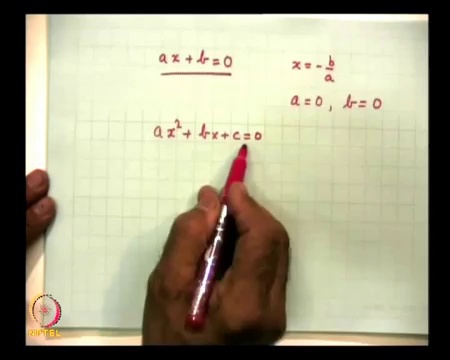 ax + b = 0
x = - b/a
a = 0 , b = 0
ax² + bx + c = 0
NPTEL